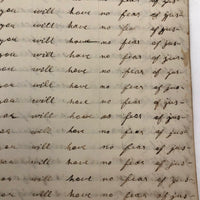 you will have no fear of jus-
you will have no fear of jus-
you will have no fear of jus-
you will have no fear of jus-
you will have no fear of jus-
you will have no fear of jus-
you will have no fear of jus-
you will have no fear of jus-
you will have no fear of jus-
you will have no fear of jus-
you will have no fear of jus-
you will have no fear of jus-